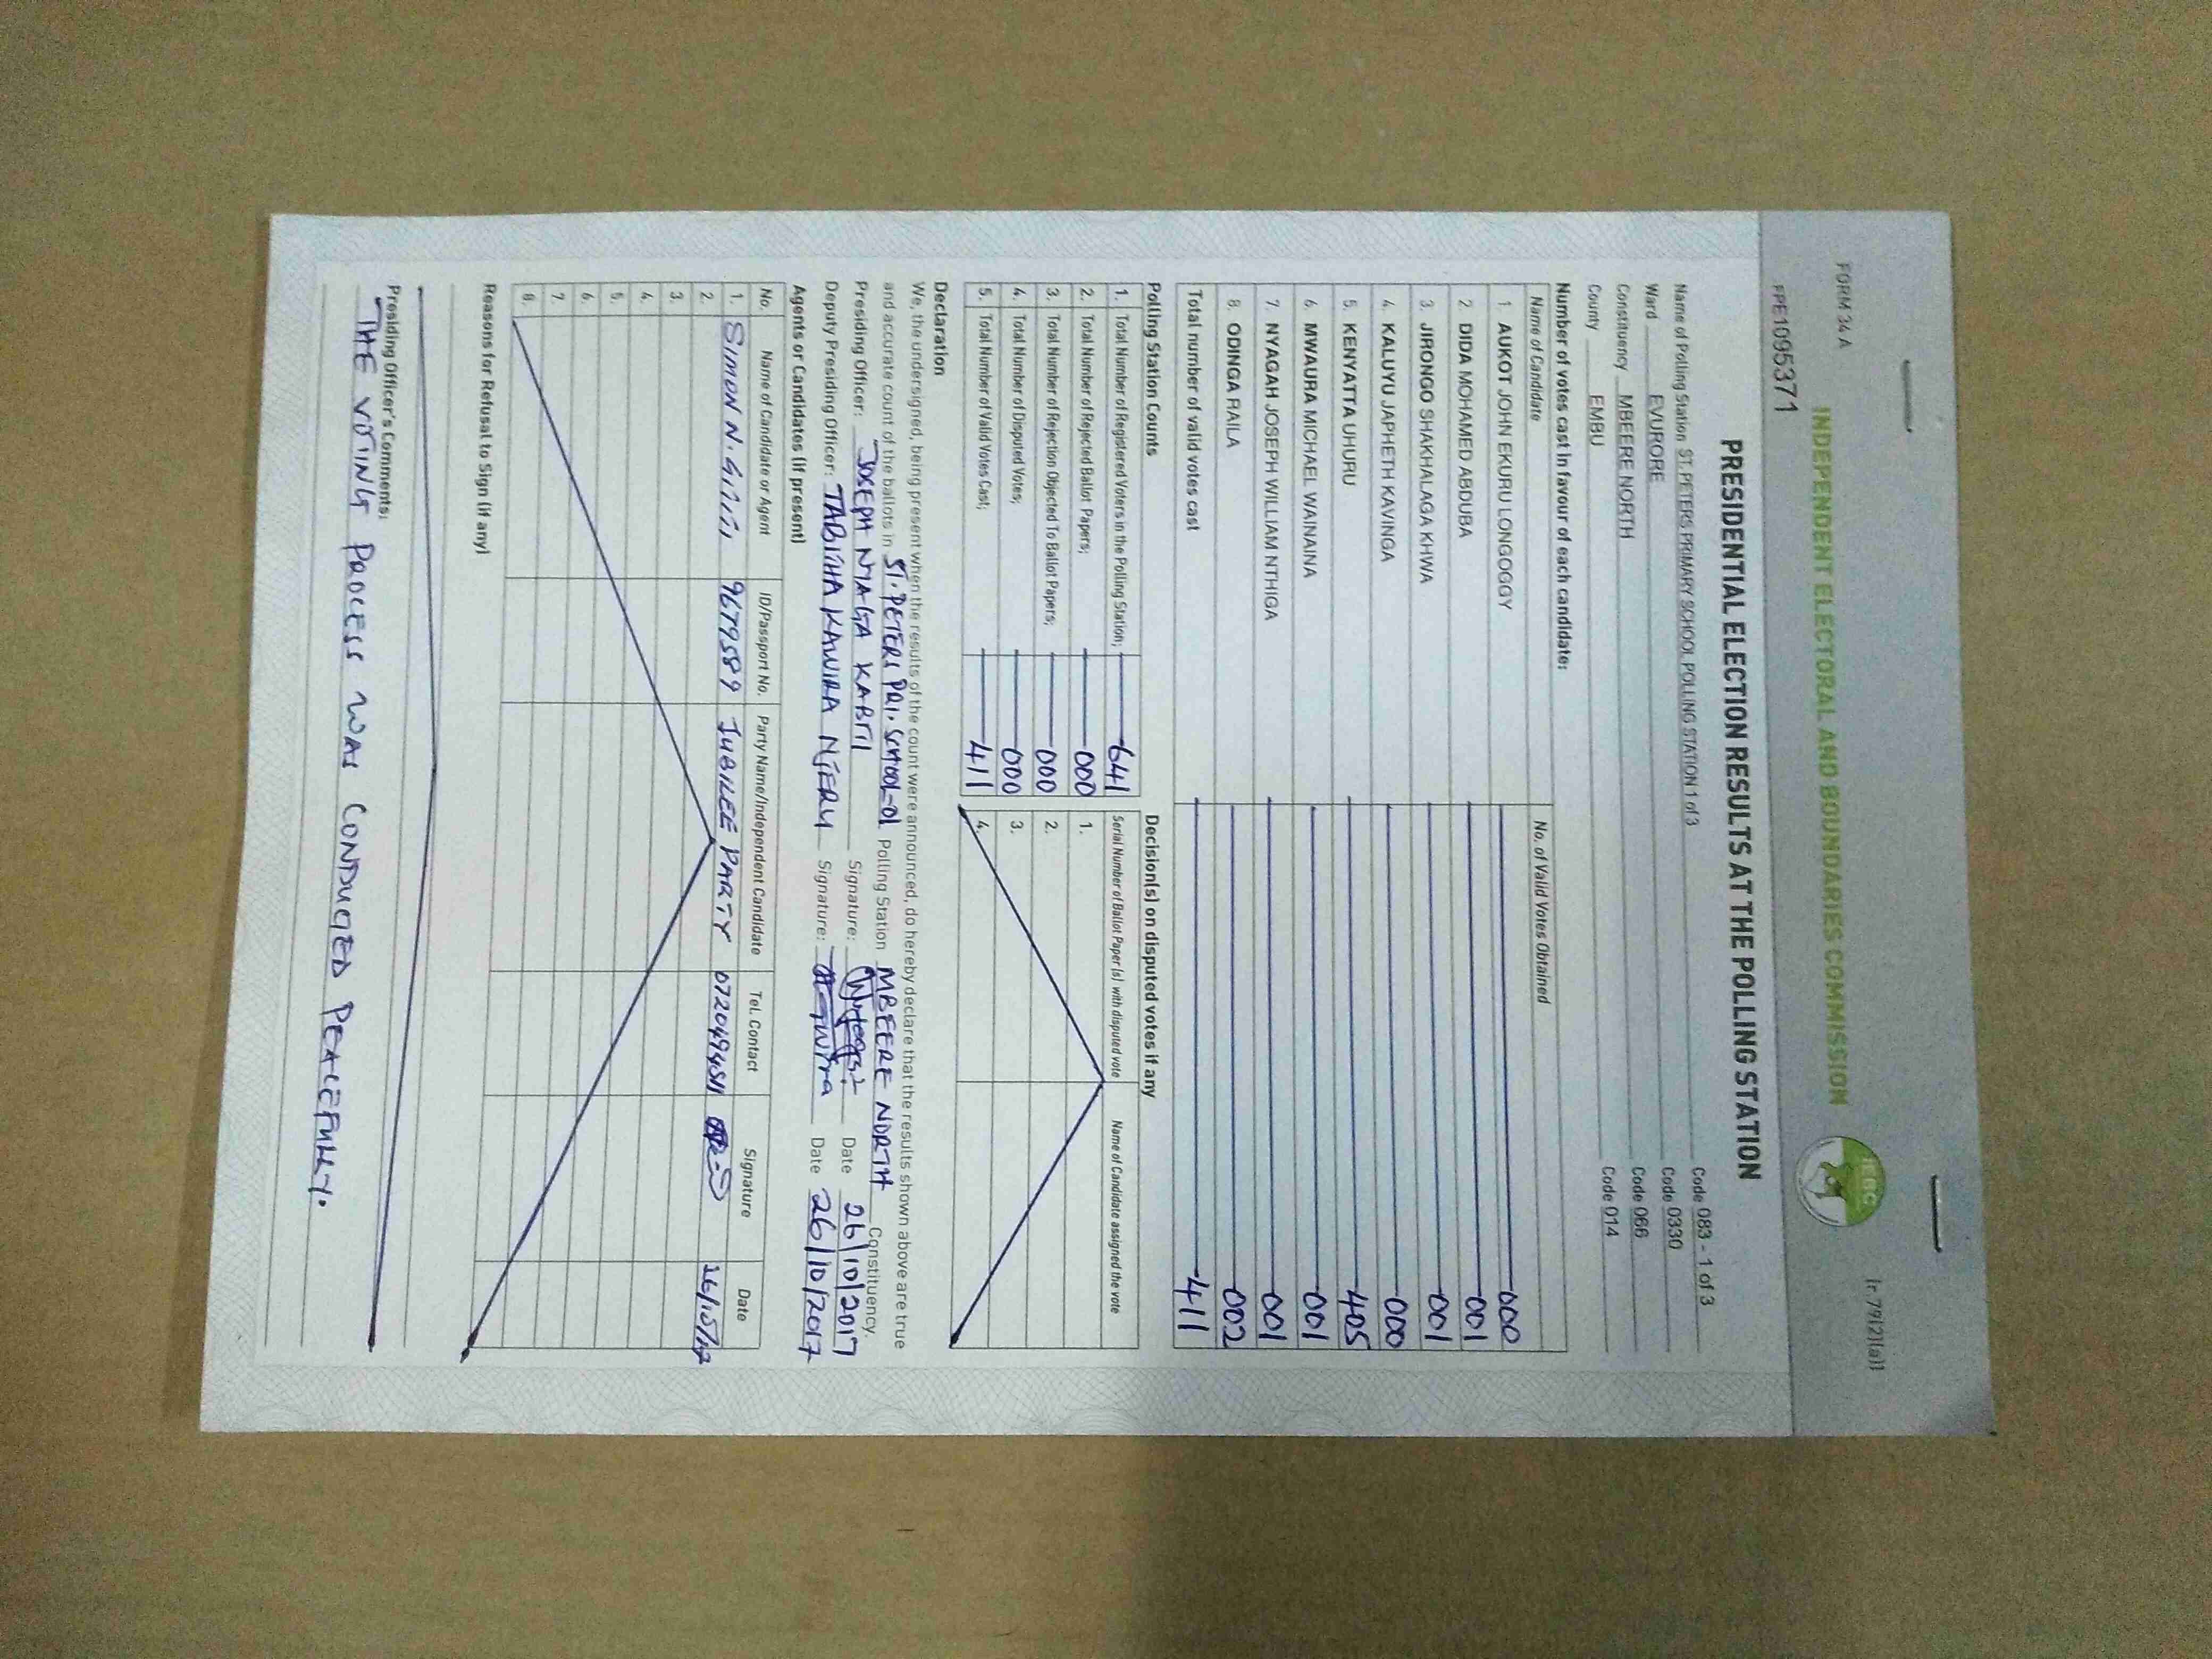 FORM 34 A
(r.79(2)(a))
INDEPENDENT ELECTORAL AND BOUNDARIES COMMISSION
IEBC
FPE1095371
PRESIDENTIAL ELECTION RESULTS AT THE POLLING STATION
Name of Polling Station ST. PETERS PRIMARY SCHOOL POLLING STATION 1 of 3 Code 083 - 1 of 3
Ward EVURORE Code 0330
Constituency MBEERE NORTH Code 066
County EMBU Code 014
Number of votes cast in favour of each candidate:
Name of Candidate No. of Valid Votes Obtained
1. AUKOT JOHN EKURU LONGOGGY 000
2. DIDA MOHAMED ABDUBA 001
3. JIRONGO SHAKHALAGA KHWA 001
4. KALUYU JAPHETH KAVINGA 000
5. KENYATTA UHURU 405
6. MWAURA MICHAEL WAINAINA 001
7. NYAGAH JOSEPH WILLIAM NTHIGA 001
8. ODINGA RAILA 002
Total number of valid votes cast 411
Polling Station Counts
1. Total Number of Registered Voters in the Polling Station; 641
2. Total Number of Rejected Ballot Papers; 000
3. Total Number of Rejection Objected To Ballot Papers; 000
4. Total Number of Disputed Votes; 000
5. Total Number of Valid Votes Cast; 411
Decision(s) on disputed votes if any
Serial Number of Ballot Paper (s) with disputed vote Name of Candidate assigned the vote
1.
2.
3.
4.
Declaration
We, the undersigned, being present when the results of the count were announced, do hereby declare that the results shown above are true
and accurate count of the ballots in ST. PETERS PRI. SCHOOL-01 Polling Station MBEERE NORTH Constituency.
Presiding Officer: JOSEPH NYAGA Signature: Date 26/10/2017
Deputy Presiding Officer: TABITHA KAWIRA NJERU Signature: Date 26/10/2017
Agents or Candidates (if present)
No. Name of Candidate or Agent ID/Passport No. Party Name/Independent Candidate Tel. Contact Signature Date
1. SIMON N. 9679589 JUBILEE PARTY 0720494511 26/10/17
2.
3.
4.
5.
6.
7.
8.
Reasons for Refusal to Sign (if any)
Presiding Officer's Comments;
THE VOTING PROCESS WAS CONDUCTED PEACEFULLY.